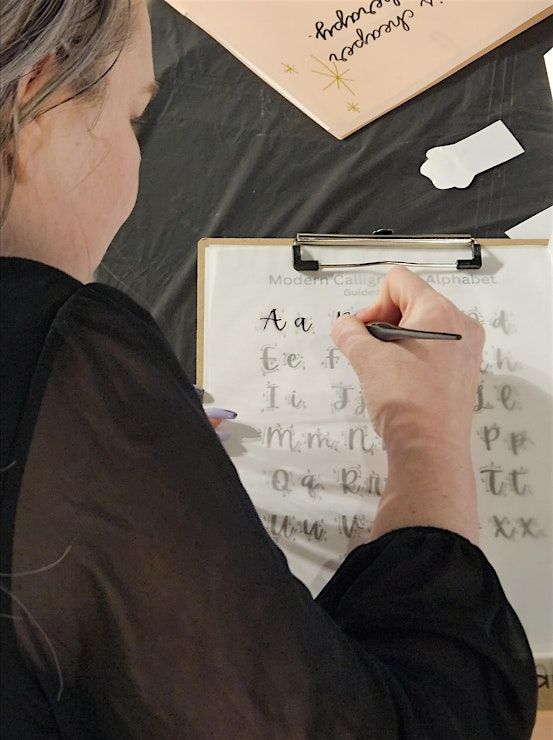 is cheaper
therapy.
Modern Calligraphy Alphabet
Guided
A a d
E e F h
I i J j L l
M m N P p
Q q R T t
U u V X x